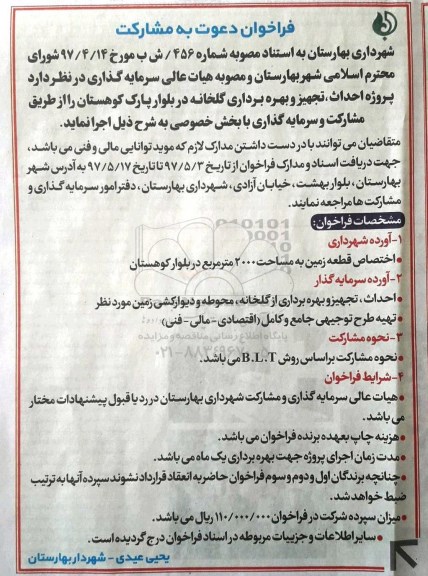 فراخوان دعوت به مشارکت
شهرداری بهارستان به استناد مصوبه شماره ۴۵۶/ ش ب مورخ ۹۷/۴/۱۴ شورای
محترم اسلامی شهر بهارستان و مصوبه هیات عالی سرمایه گذاری در نظر دارد
پروژه احداث، تجهیز و بهره برداری گلخانه در بلوار پارک کوهستان را از طریق
مشارکت و سرمایه گذاری با بخش خصوصی به شرح ذیل اجرا نماید.
متقاضیان می توانند با در دست داشتن مدارک لازم که موید توانایی مالی و فنی می باشد،
جهت دریافت اسناد و مدارک فراخوان از تاریخ ۹۷/۵/۳ تا تاریخ ۹۷/۵/۱۷ به آدرس شهر
بهارستان، بلوار بهشت، خیابان آزادی، شهرداری بهارستان، دفتر امور سرمایه گذاری و
مشارکت ها مراجعه نمایند.
مشخصات فراخوان:
۱-آورده شهرداری
• اختصاص قطعه زمین به مساحت ۲۰۰۰ مترمربع در بلوار کوهستان
۲-آورده سرمایه گذار
• احداث، تجهیز و بهره برداری از گلخانه، محوطه و دیوارکشی زمین مورد نظر
• تهیه طرح توجیهی جامع و کامل (اقتصادی - مالی - فنی)
پایگاه اطلاع رسانی مناقصه و مزایده
۳- نحوه مشارکت
• نحوه مشارکت براساس روش B.L.T می باشد.
۴-شرایط فراخوان
• هیات عالی سرمایه گذاری و مشارکت شهرداری بهارستان در رد یا قبول پیشنهادات مختار
می باشد.
• هزینه چاپ بعهده برنده فراخوان می باشد.
• مدت زمان اجرای پروژه جهت بهره برداری یک ماه می باشد.
• چنانچه برندگان اول و دوم و سوم فراخوان حاضر به انعقاد قرارداد نشوند سپرده آنها به ترتیب
ضبط خواهد شد.
• میزان سپرده شرکت در فراخوان ۱۱۰/۰۰۰/۰۰۰ ریال می باشد.
• سایر اطلاعات و جزییات مربوطه در اسناد فراخوان درج گردیده است.
یحیی عیدی - شهردار بهارستان